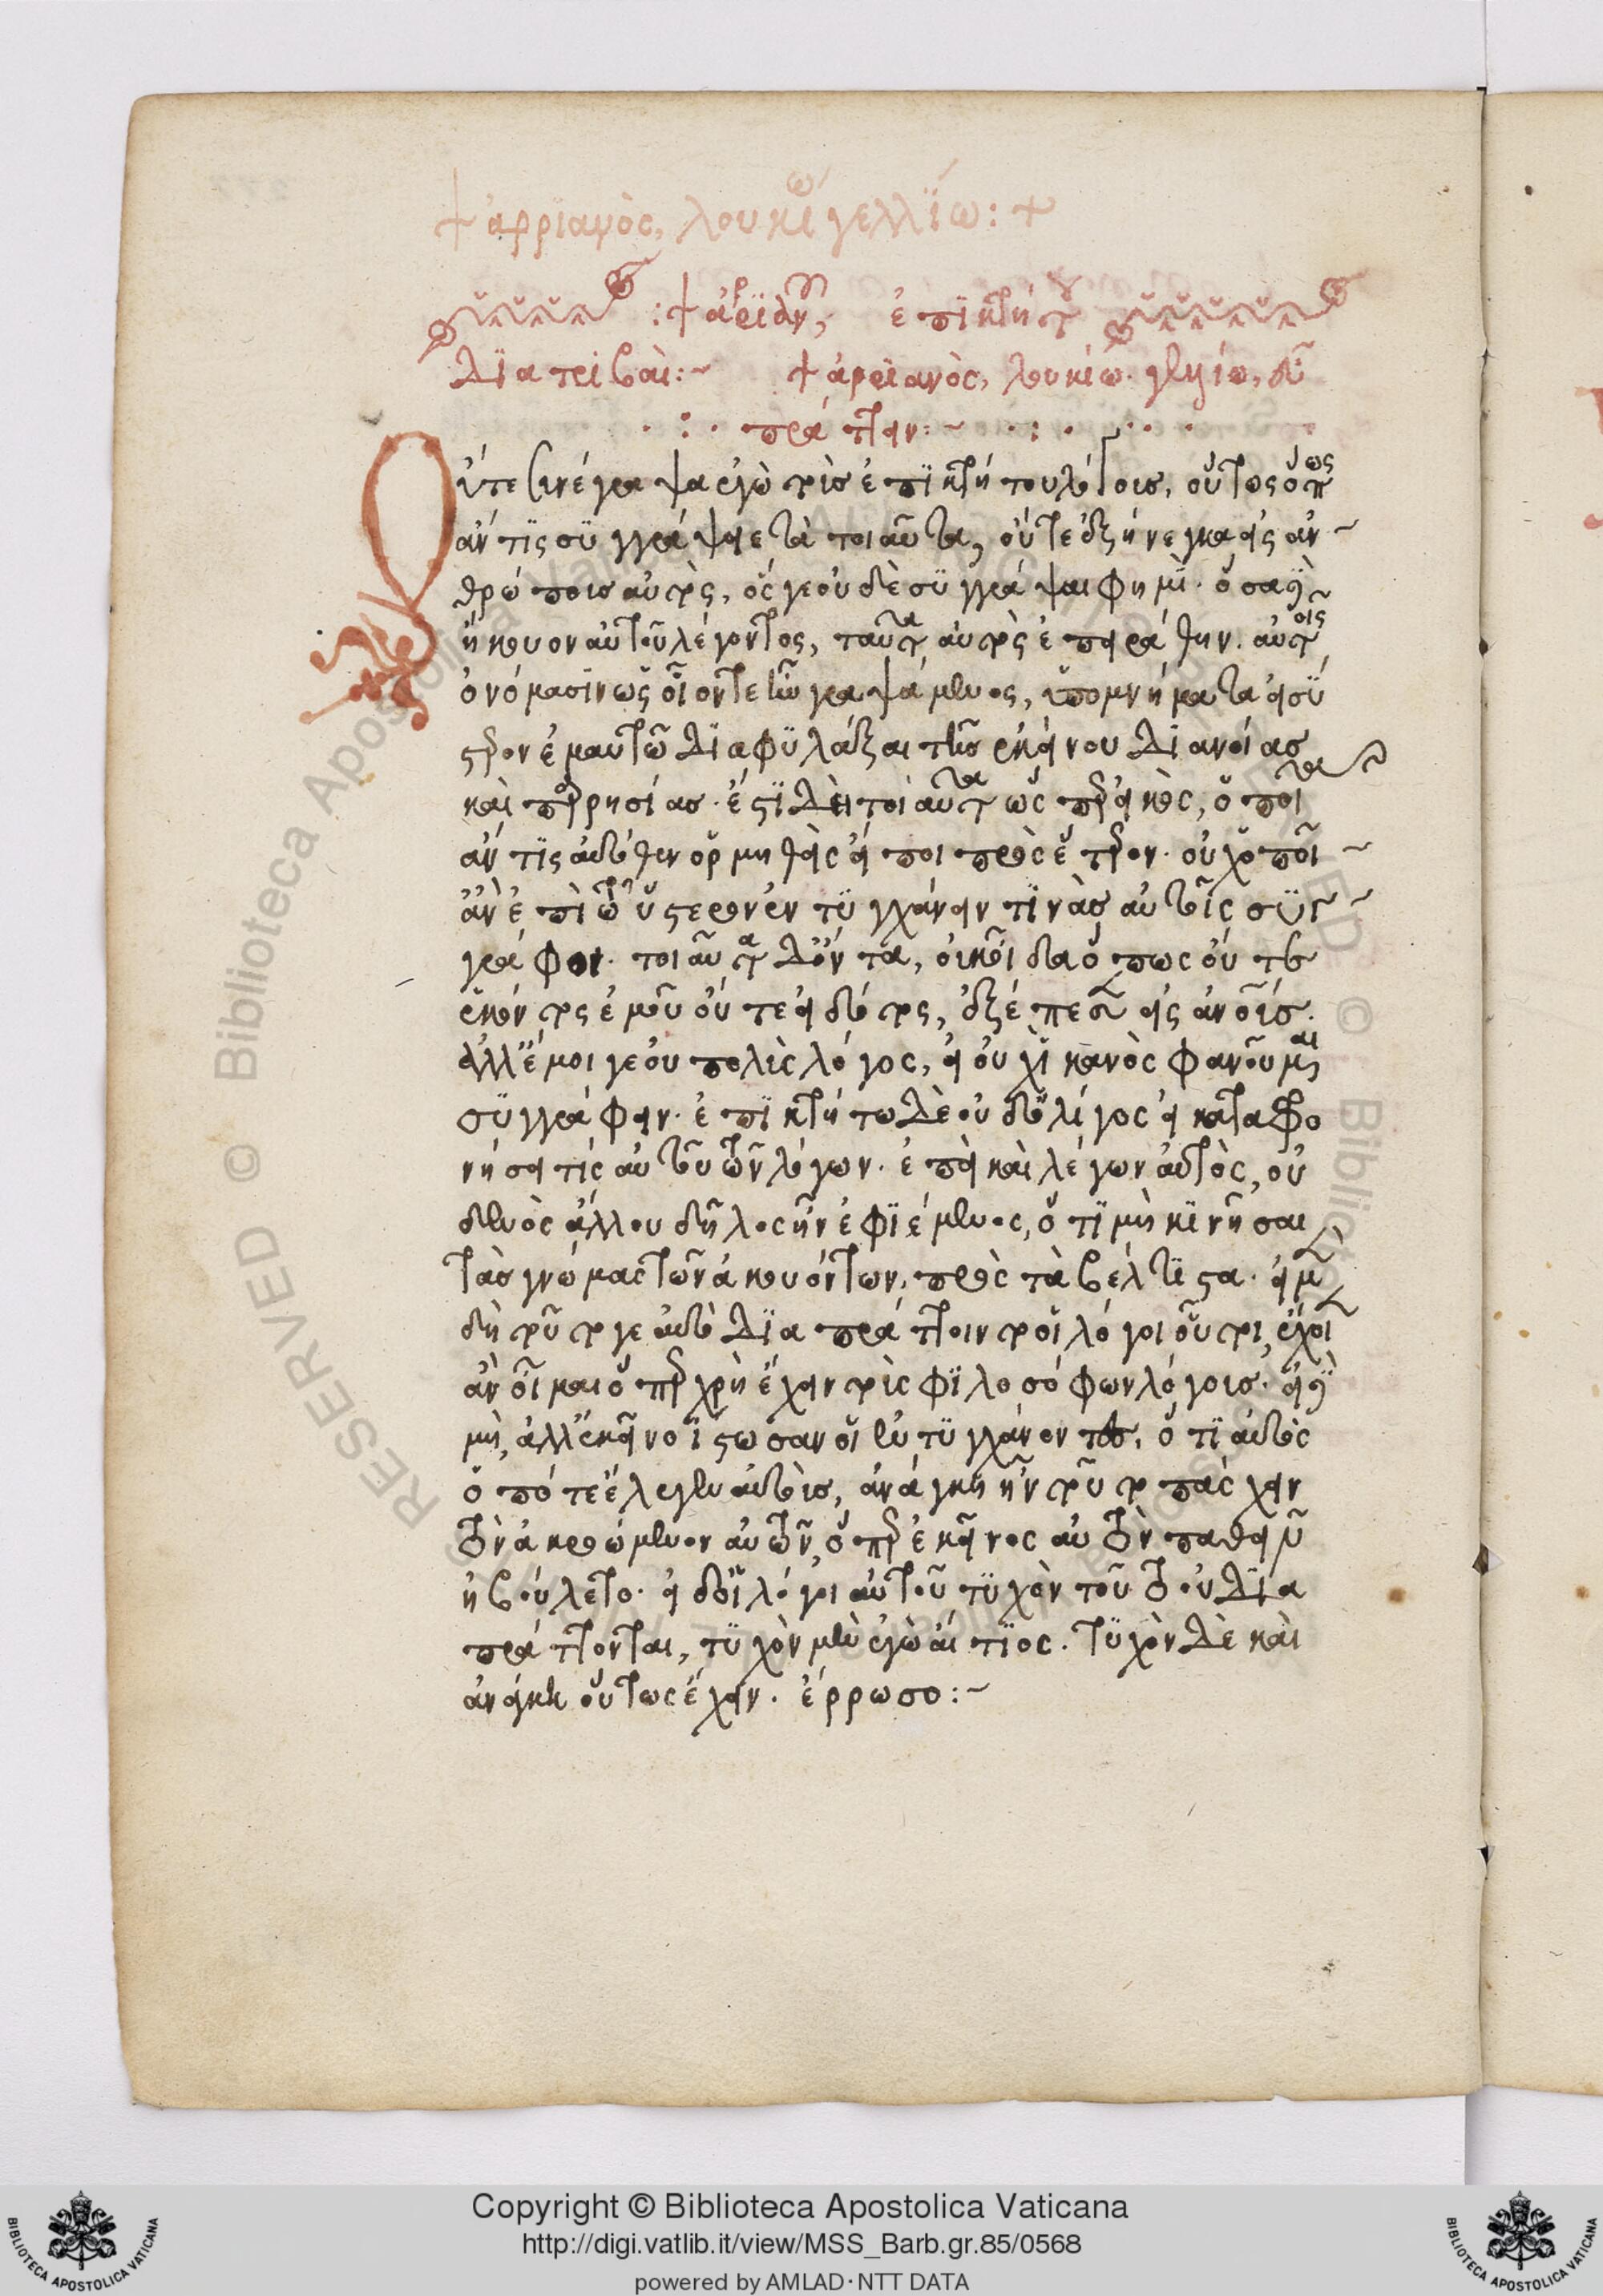 + ἀρριανὸς, λουκίῳ γελλίω: +
:+ ἀρριανοῦ, ἐπικτήτου
διατριβαὶ:~ + ἀρριανὸς, λουκίω γελλίω, εὖ
πράττειν:~
Οὔτε συνέγραψα ἐγὼ τοὺς ἐπικτήτου λόγους, οὕτως ὅπως
ἄν τις συγγράψειε τὰ τοιαῦτα, οὔτε ἐξήνεγκα εἰς ἀν
θρώπους αὐτὸς, ὅς γε οὐδὲ συγγράψαι φημί. ὅσα δὲ
ἤκουον αὐτοῦ λέγοντος, ταῦτα αὐτὸς ἐπειράθην. αὐτοῖς
ὀνόμασιν ὡς οἷόν τε ἦν γραψάμενος, ὑπομνήματα εἰς ὕ
στερον ἐμαυτῶ διαφυλάξαι τῆς ἐκείνου διανοίας
καὶ παρρησίας. ἔστι δὲ τοιαῦτα ὥσπερ εἰκὸς, ὁποῖα
ἄν τις αὐτόθεν ὁρμηθεὶς εἴποι πρὸς ἕτερον. οὐχ ὁποῖα
ἂν ἐπὶ τῶ ὕστερον ἐντυγχάνειν τινὰς αὐτοῖς συγ
γράφοι. τοιαῦτα δ' ὄντα, οὐκ οἶδα ὅπως οὔτε
ἑκόντος ἐμοῦ οὔτε εἰδότος, ἐξέπεσεν εἰς ἀνθρώπους.
ἀλλ' ἔμοιγε οὐ πολὺς λόγος, εἰ οὐχ ἱκανὸς φανοῦμαι
συγγράφειν. ἐπικτήτω δὲ οὐδ' ὀλίγος εἰ καταφρο
νήσει τίς αὐτοῦ τῶν λόγων. ἐπεὶ καὶ λέγων αὐτὸς, οὐ
δενὸς ἄλλου δῆλος ἦν ἐφιέμενος, ὅτι μὴ κινῆσαι
τὰς γνώμας τῶν ἀκουόντων, πρὸς τὰ βέλτιστα. εἰ μὲν
δὴ τοῦτό γε αὐτὸ διαπράττοιντο οἱ λόγοι οὗτοι, ἔχοιεν
ἂν οἶμαι ὅπερ χρὴ ἔχειν τοὺς φιλοσόφων λόγους. εἰ δὲ
μὴ, ἀλλ' ἐκεῖνο ἴστωσαν οἱ ἐντυγχάνοντες, ὅτι αὐτὸς
ὁπότε ἔλεγεν αὐτοὺς, ἀνάγκη ἦν τοῦτο πάσχειν
τὸν ἀκροώμενον αὐτῶν, ὅπερ ἐκεῖνος αὐτὸν παθεῖν
ἠβούλετο. εἰ δ' οἱ λόγοι αὐτοῦ τυχὸν τοῦτο οὐ δια
πράττονται, τυχὸν μὲν ἐγὼ αἴτιος. τυχὸν δὲ καὶ
ἀνάγκη οὕτως ἔχειν. ἔρρωσο:~
RESERVED © Biblioteca Apostolica Vaticana
Copyright © Biblioteca Apostolica Vaticana
http://digi.vatlib.it/view/MSS_Barb.gr.85/0568
powered by AMLAD·NTT DATA
BIBLIOTECA APOSTOLICA VATICANA
BIBLIOTECA APOSTOLICA VATICANA